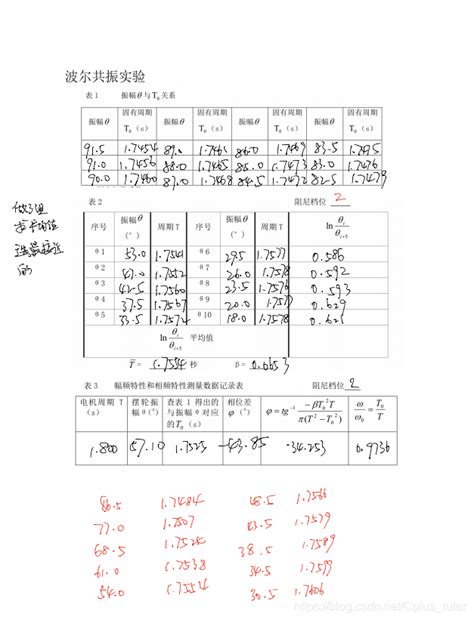 波尔共振实验
表1 振幅θ与T₀关系
振幅θ 固有周期T₀（s） 振幅θ 固有周期T₀（s） 振幅θ 固有周期T₀（s） 振幅θ 固有周期T₀（s）
91.5 1.7454 89.0 1.7469 83.5 1.7475
91.0 1.7456 88.0 1.7465 1.7473 83.0 1.7476
90.0 1.7460 87.0 1.7468 84.5 82.5 1.7479
做3组
求平均值
的
表2 阻尼档位 2
序号 振幅θ（°） 周期T 序号 振幅θ（°） 周期T ln θi/θi+5
θ1 53.0 1.7541 θ6 29.5 1.7577 0.586
θ2 1.7552 θ7 26.0 1.7578 0.592
θ3 42.5 1.7560 θ8 23.5 1.7576 0.593
θ4 37.5 1.7567 θ9 20.0 0.629
θ5 33.5 1.7572 θ10 18.0 1.7578
ln θi/θi+5 平均值
T̄= 秒 β=
表3 幅频特性和相频特性测量数据记录表 阻尼档位 2
电机周期T（s） 摆轮振幅θ(°) 查表1得出的与振幅θ对应的T₀(s) 相位差φ(°) φ=tg⁻¹ −βT₀²T/π(T²−T₀²) ω/ω₀=T₀/T
1.800 57.10 1.7523 -43.85 -34.253 0.9736
86.5 1.7484 48.5 1.7566
77.0 1.7507 43.5 1.7579
68.5 1.7524 38.5 1.7589
61.0 1.7538 34.5 1.7599
54.0 1.7554 1.7606
https://blog.csdn.net/Cplus_ruler